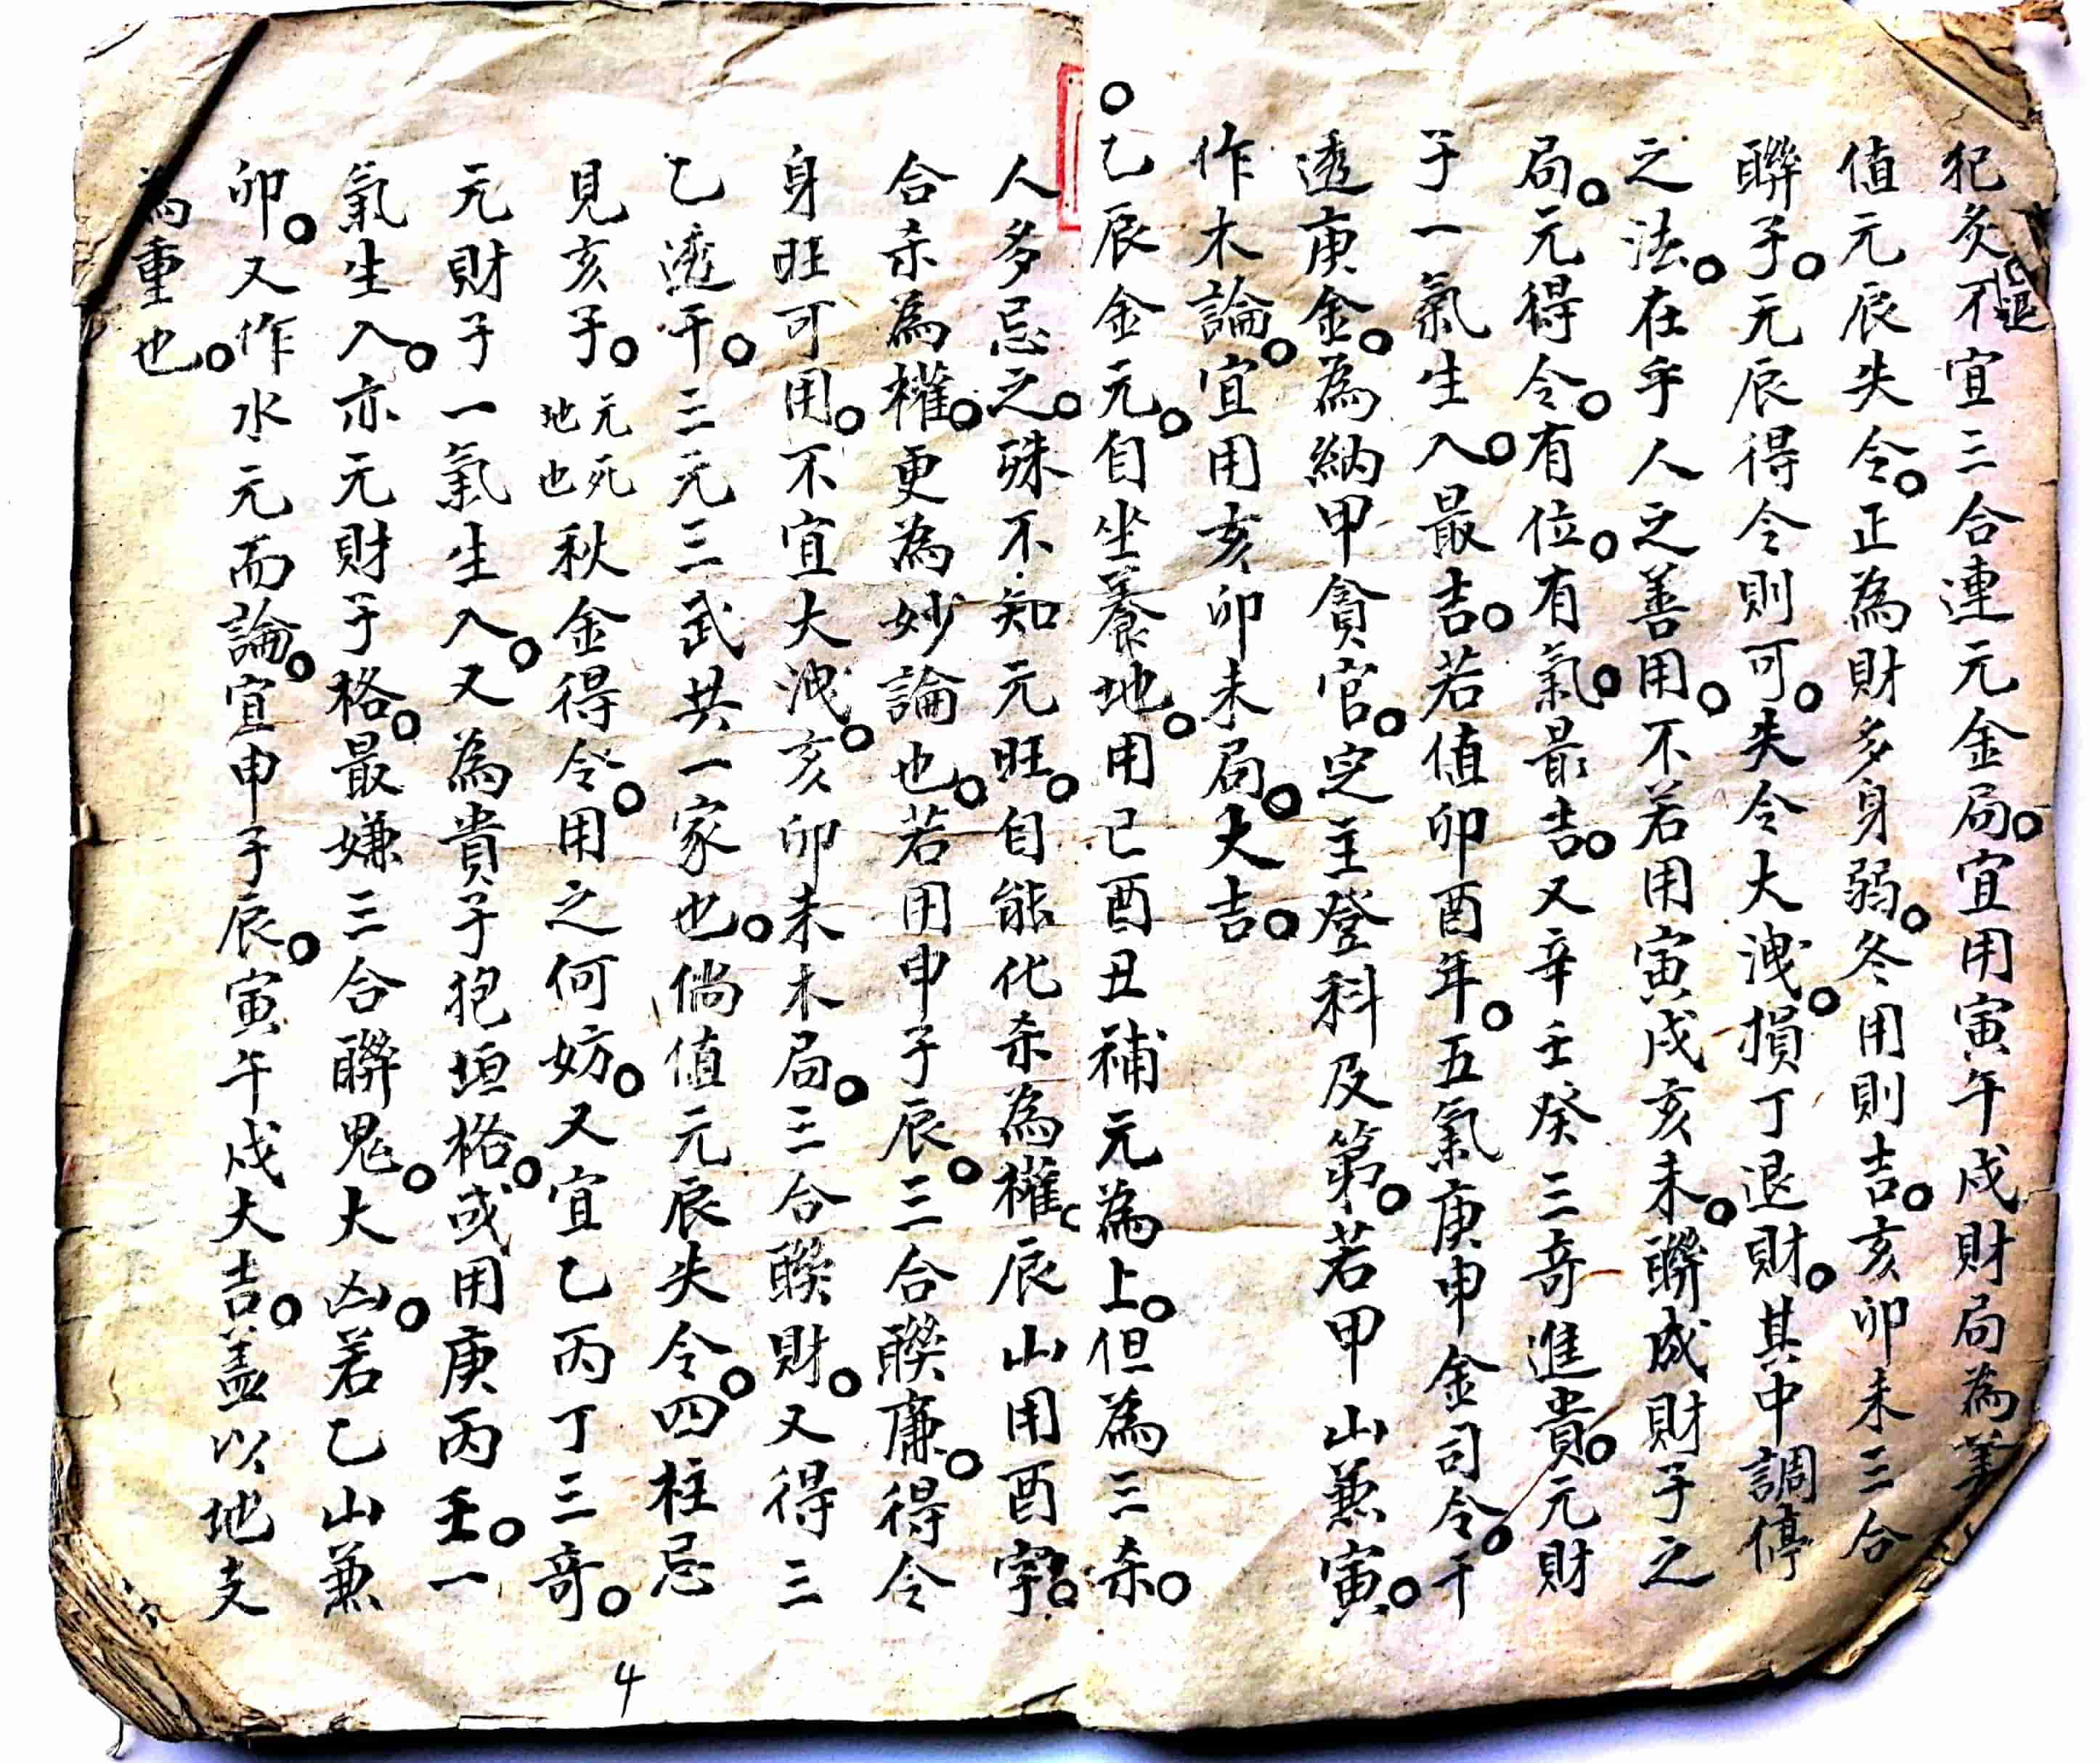 犯炙退。不宜三合連元金局。宜用寅午戌財局為美
值元辰失令。正為財多身弱。冬用則吉。亥卯未三合
聯子。元辰得令則可。失令大洩。損丁退財。其中調停
之法。在乎人之善用。不若用寅戌亥未。聯成財子之
局。元得令。有位。有氣。最吉。又辛壬癸三奇進貴。元財
子一氣生入。最吉。若值卯酉年。五氣庚申金司令。干
透庚金。為納甲貪官。定主登科及第。若甲山兼寅。
作木論。宜用亥卯未局。大吉。
○乙辰金元。自坐養地。用巳酉丑補元為上。但為三杀。
人多忌之。殊不知元旺。自能化杀為權。辰山用酉字。
合杀為權。更為妙論也。若用申子辰。三合聯廉。得令
身旺可用。不宜大洩。亥卯未木局。三合聯財。又得三
乙透干。三元三武共一家也。倘值元辰失令。四柱忌
見亥子。元死地也秋金得令。用之何妨。又宜乙丙丁三奇。
元財子一氣生入。又為貴子抱垣格。或用庚丙壬。一
氣生入。亦元財子格。最嫌三合聯鬼。大凶。若乙山兼
卯。又作水元而論。宜申子辰。寅午戌大吉。蓋以地支
為重也。
4